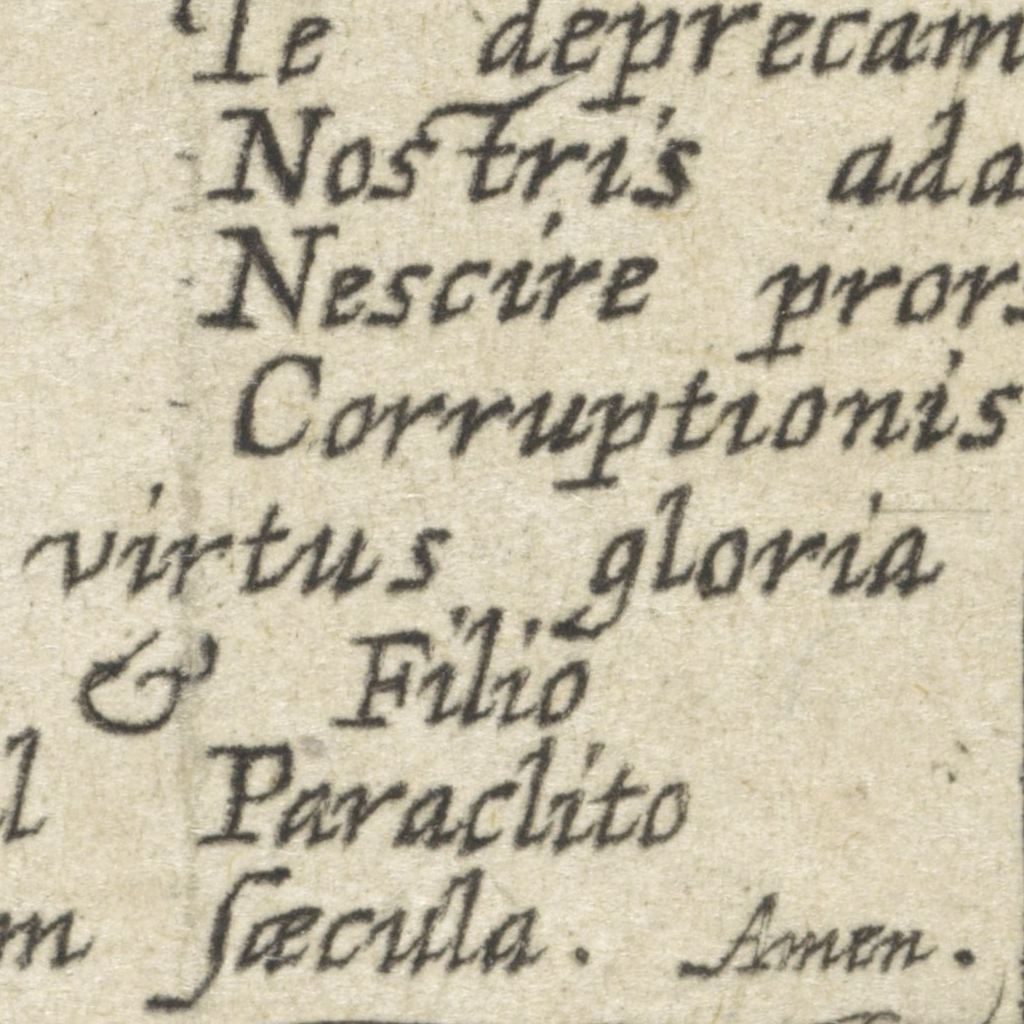 Te deprecam
Nostris ada
Nescire prors
Corruptionis
virtus gloria
& Filio
l Paraclito
m sæcula. Amen.